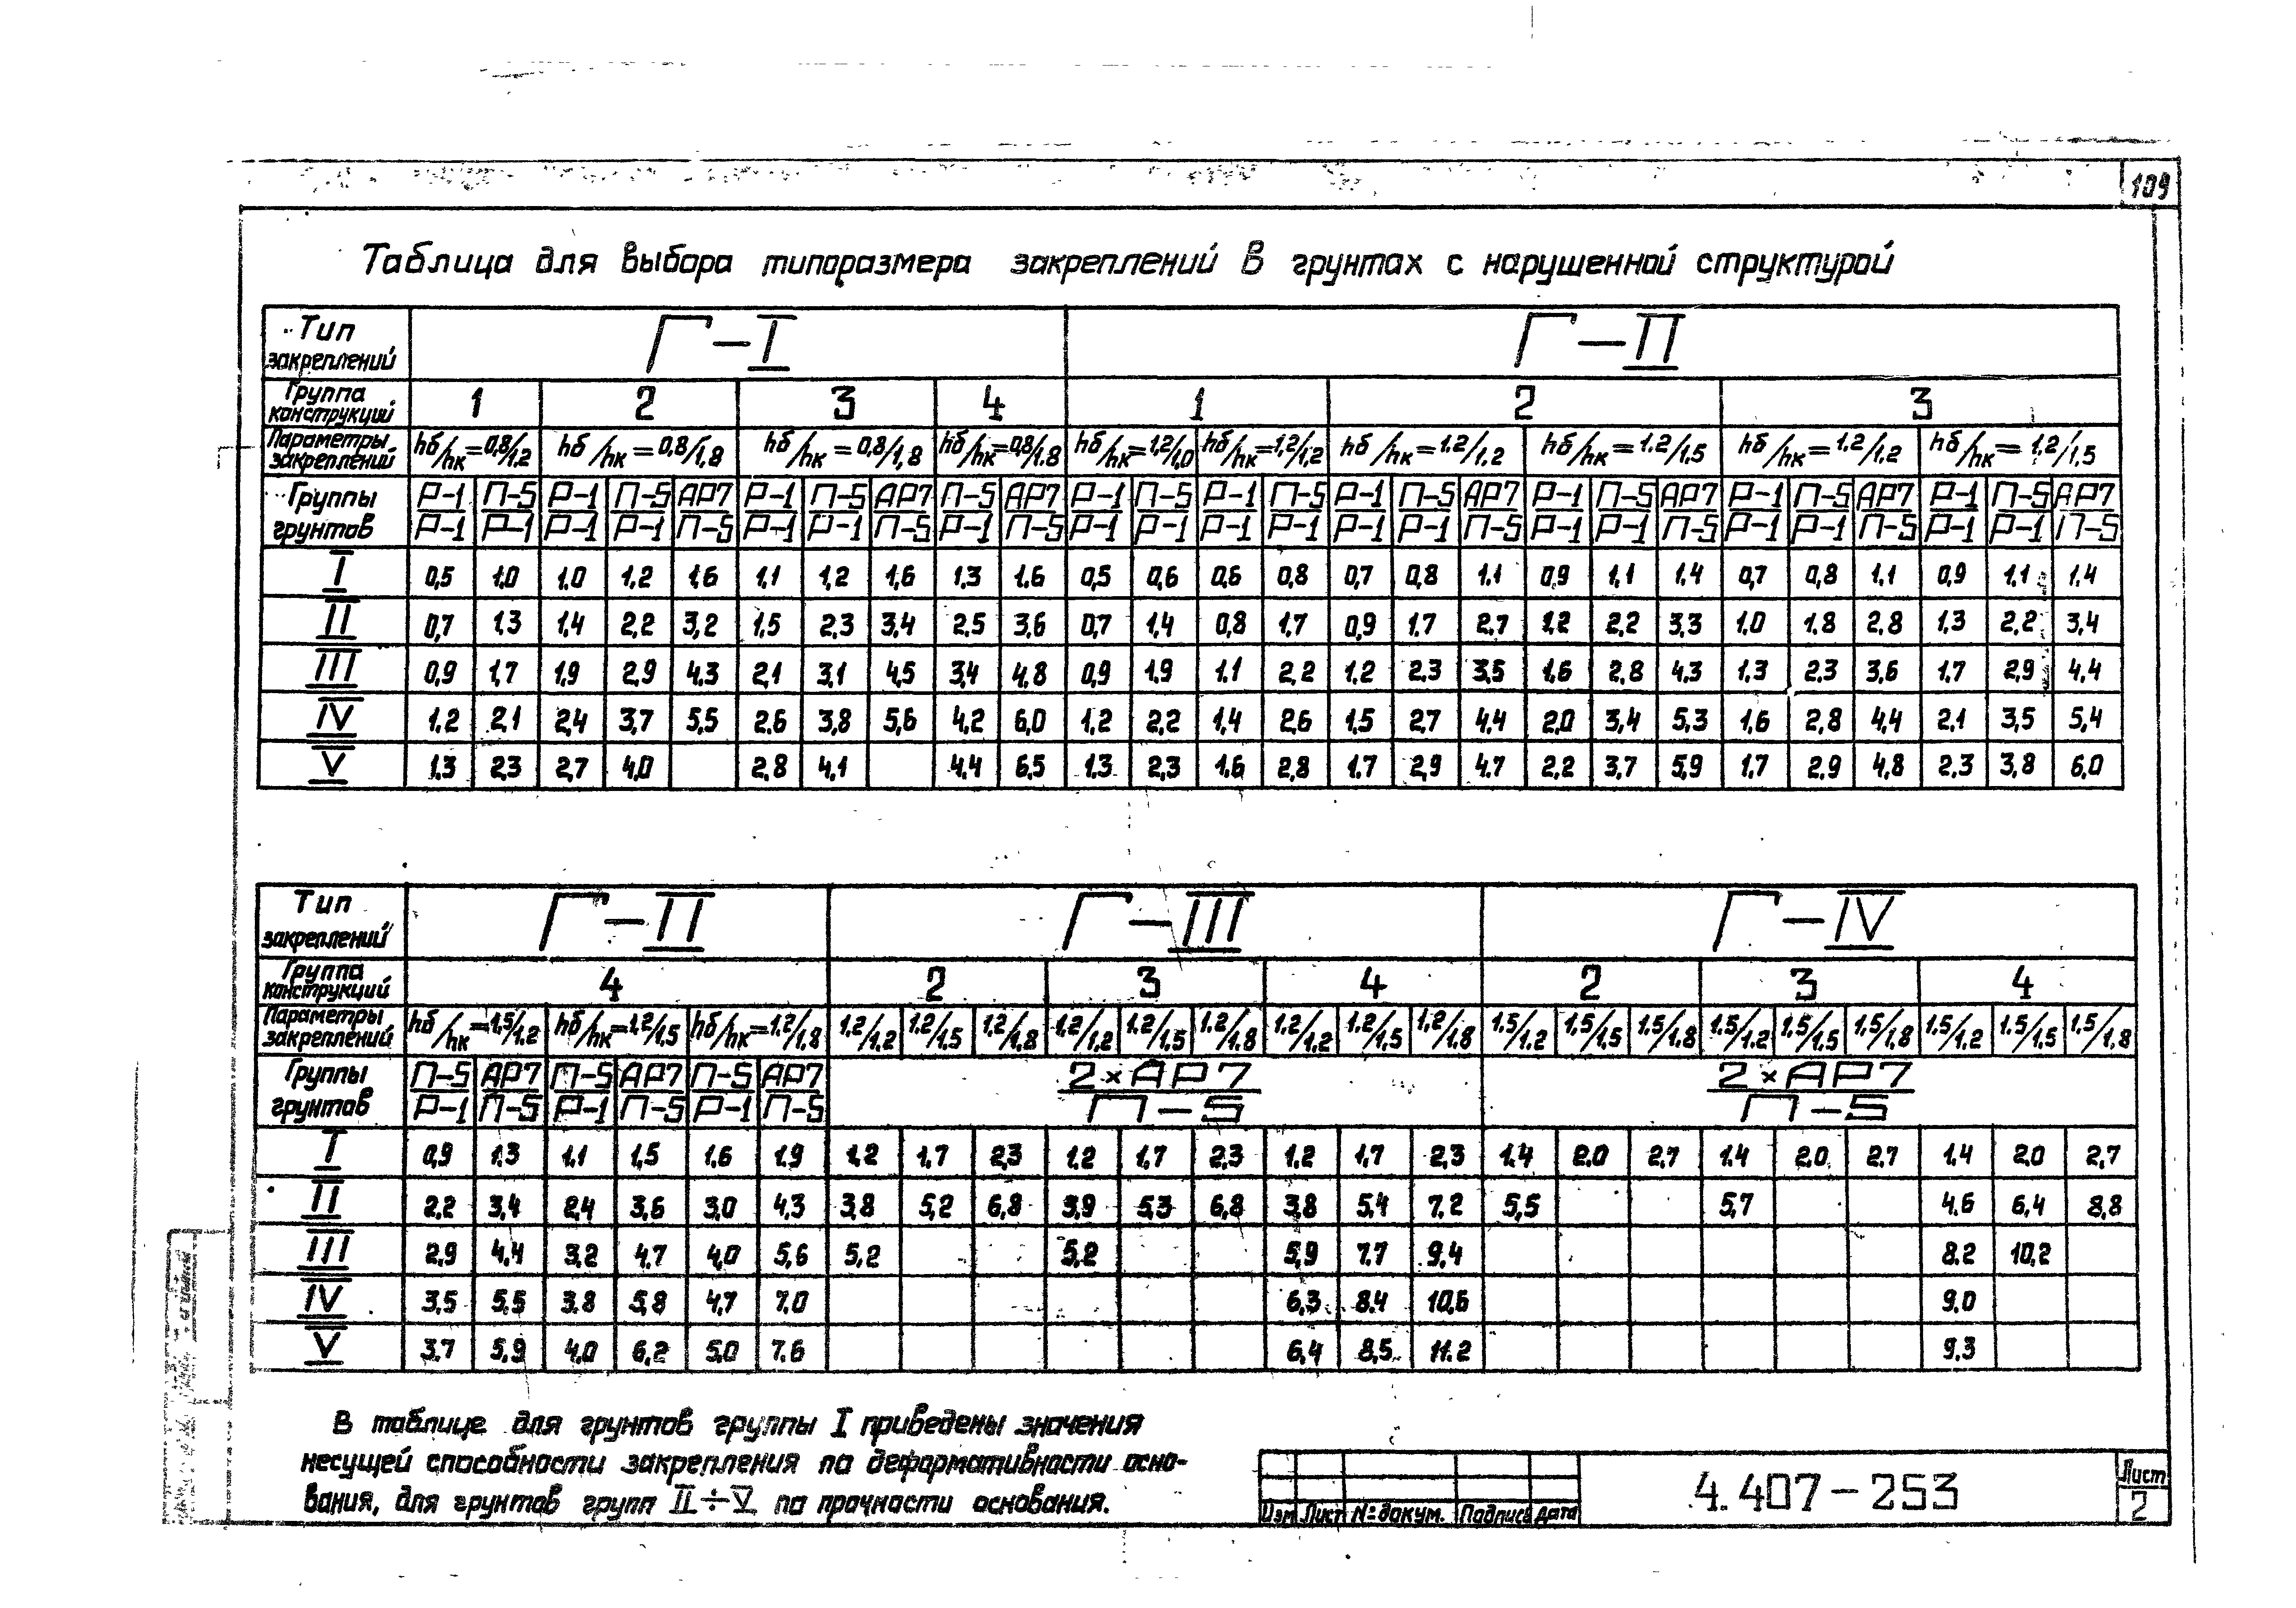 109
Таблица для выбора типоразмера закреплений в грунтах с нарушенной структурой
Тип закреплений Г-I Г-II
Группа конструкций 1 2 3 4 1 2 3
Параметры закреплений hб/hк=0,8/1,2 hб/hк=0,8/1,8 hб/hк=0,8/1,8 hб/hк=0,8/1.8 hб/hк=1,2/1,0 hб/hк=1,2/1,2 hб/hк=1.2/1,2 hб/hк=1.2/1,5 hб/hк=1.2/1,2 hб/hк=1,2/1,5
Группы грунтов Р-1/Р-1 П-5/Р-1 Р-1/Р-1 П-5/Р-1 АР7/П-5 Р-1/Р-1 П-5/Р-1 АР7/П-5 П-5/Р-1 АР7/П-5 Р-1/Р-1 П-5/Р-1 Р-1/Р-1 П-5/Р-1 Р-1/Р-1 П-5/Р-1 АР7/П-5 Р-1/Р-1 П-5/Р-1 АР7/П-5 Р-1/Р-1 П-5/Р-1 АР7/П-5 Р-1/Р-1 П-5/Р-1 АР7/П-5
I 0,5 1.0 1.0 1,2 1,6 1,1 1,2 1,6 1.3 1.6 0,5 0,6 0,6 0,8 0,7 0,8 1.1 0,9 1,1 1,4 0,7 0,8 1,1 0,9 1,1 1,4
II 0,7 1.3 1,4 2.2 3,2 1,5 2.3 3,4 2.5 3,6 0,7 1,4 0,8 1,7 0,9 1.7 2.7 1.2 2,2 3,3 1.0 1.8 2,8 1.3 2,2 3,4
III 0,9 1,7 1,9 2,9 4,3 2,1 3,1 4,5 3,4 4,8 0,9 1,9 1.1 2,2 1.2 2.3 3,5 1,6 2,8 4,3 1,3 2,3 3,6 1,7 2,9 4,4
IV 1,2 2,1 2,4 3,7 5,5 2.6 3,8 5,6 4,2 6,0 1,2 2,2 1,4 2,6 1.5 2,7 4,4 2,0 3,4 5,3 1,6 2,8 4,4 2,1 3,5 5,4
V 1,3 2,3 2,7 4,0 2,8 4,1 4,4 6,5 1.3 2,3 1,6 2,8 1.7 2,9 4.7 2,2 3,7 5,9 1,7 2,9 4,8 2,3 3,8 6,0
Тип закреплений Г-II Г-III Г-IV
Группа конструкций 4 2 3 4 2 3 4
Параметры закреплений hб/hк=1,5/1.2 hб/hк=1,2/1,5 hб/hк=1,2/1,8 1,2/1.2 1.2/1,5 1,2/1,8 1,2/1,2 1,2/1,5 1.2/1,8 1,2/1,2 1,2/1,5 1,2/1,8 1.5/1.2 1,5/1,5 1.5/1,8 1.5/1.2 1,5/1,5 1,5/1,8 1.5/1.2 1.5/1,5 1,5/1,8
Группы грунтов П-5/Р-1 АР7/П-5 П-5/Р-1 АР7/П-5 П-5/Р-1 АР7/П-5 2×АР7/П-5 2×АР7/П-5
I 0,9 1.3 1,1 1,5 1.6 1.9 1,2 1,7 2,3 1.2 1,7 2,3 1,2 1,7 2,3 1.4 2.0 2,7 1.4 2,0 2,7 1,4 2,0 2,7
II 2,2 3,4 2,4 3,6 3,0 4,3 3,8 5,2 6,8 3,9 5,3 6,8 3,8 5,4 7,2 5,5 5,7 4.6 6,4 8,8
III 2,9 4,4 3,2 4,7 4,0 5,6 5,2 5,2 5,9 7,7 9,4 8,2 10,2
IV 3,5 5,5 3.8 5,8 4,7 7.0 6,3 8,4 10,6 9.0
V 3.7 5,9 4,0 6,2 5,0 7.6 6,4 8,5 11.2 9,3
В таблице для грунтов группы I приведены значения
несущей способности закрепления по деформативности осно-
вания, для грунтов групп II÷V по прочности основания.
Изм Лист № докум. Подпись Дата
4.407-253
Лист
2